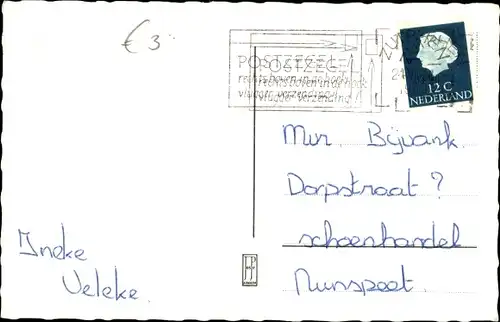 € 3
POSTZEGEL
rechts boven in de hoek
vlugger verzending!
12 C
NEDERLAND
Mvr. Bijvank.
Dorpstraat ?
schoenhandel
Nunspeet.
Ineke
Veleke.